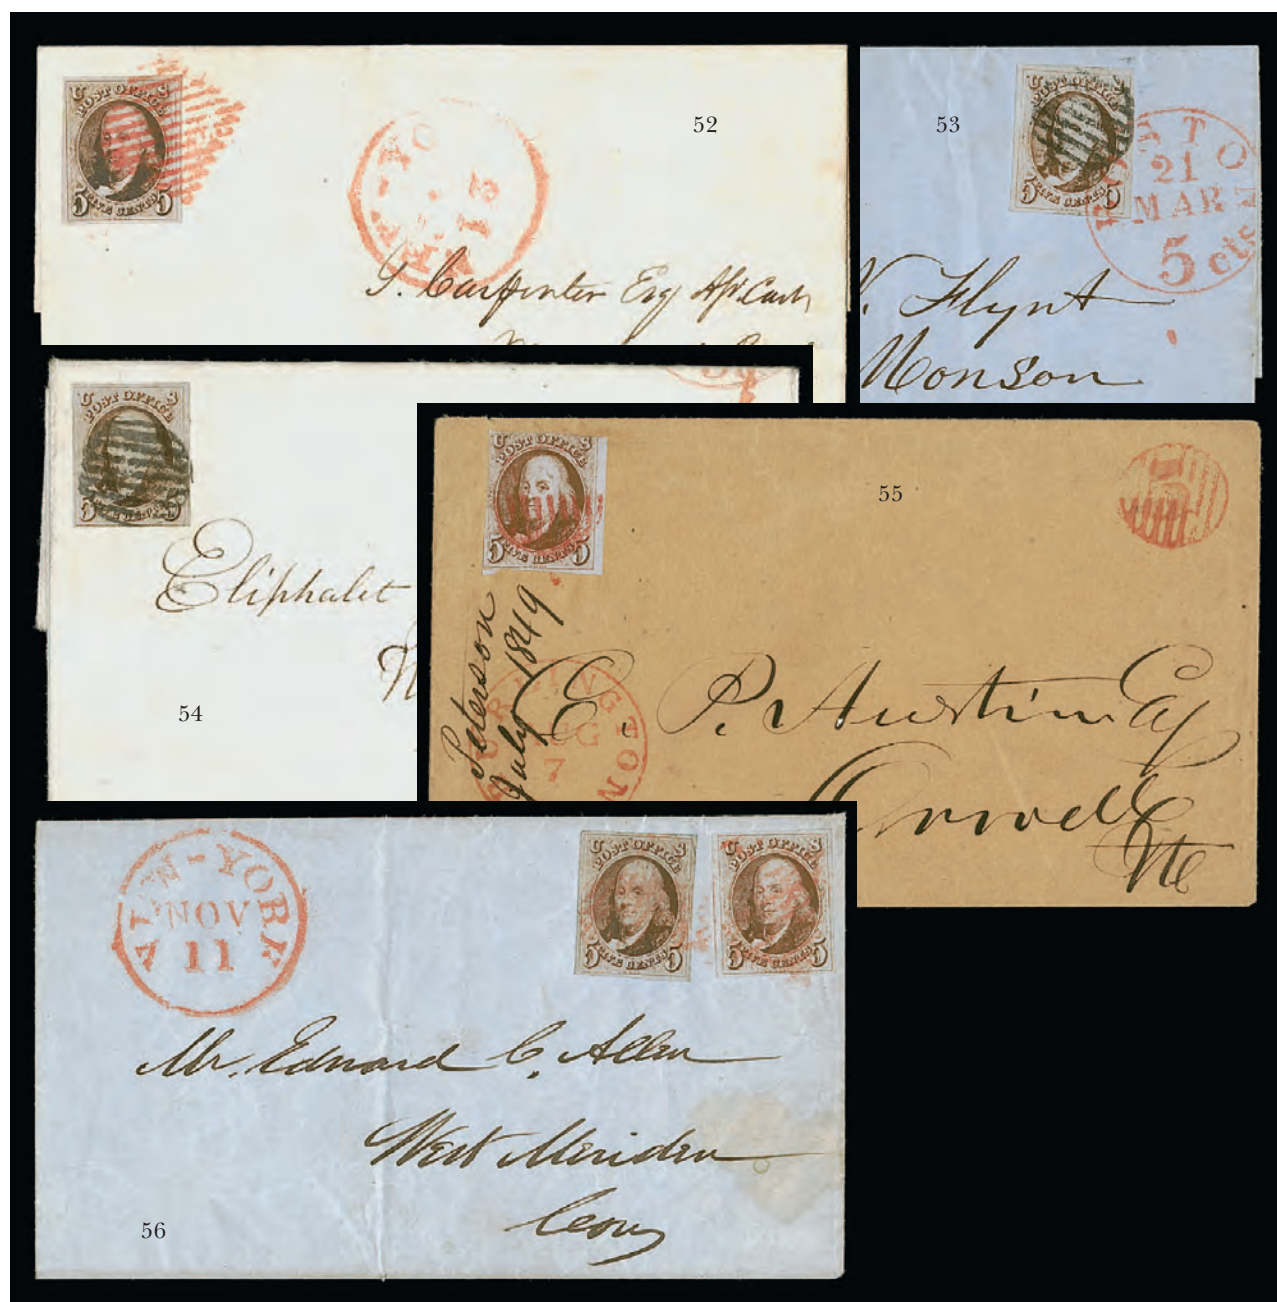 U S
POST OFFICE
5 FIVE CENTS 5
13
52
S. Carpenter Esq
53
U S
POST OFFICE
5 FIVE CENTS 5
BOSTON
21
MAR
5 cts
Flynt
Monson
U S
POST OFFICE
5 FIVE CENTS 5
Eliphalet
54
U S
POST OFFICE
5 FIVE CENTS 5
55
5
Peterson
July 1849
BURLINGTON
AUG
7
E. P. Austin Esq
Orwell
Vt
NEW-YORK
NOV
11
U S
POST OFFICE
5 FIVE CENTS 5
U S
POST OFFICE
5 FIVE CENTS 5
Mr. Edward C. Allen
West Meriden
Conn
56